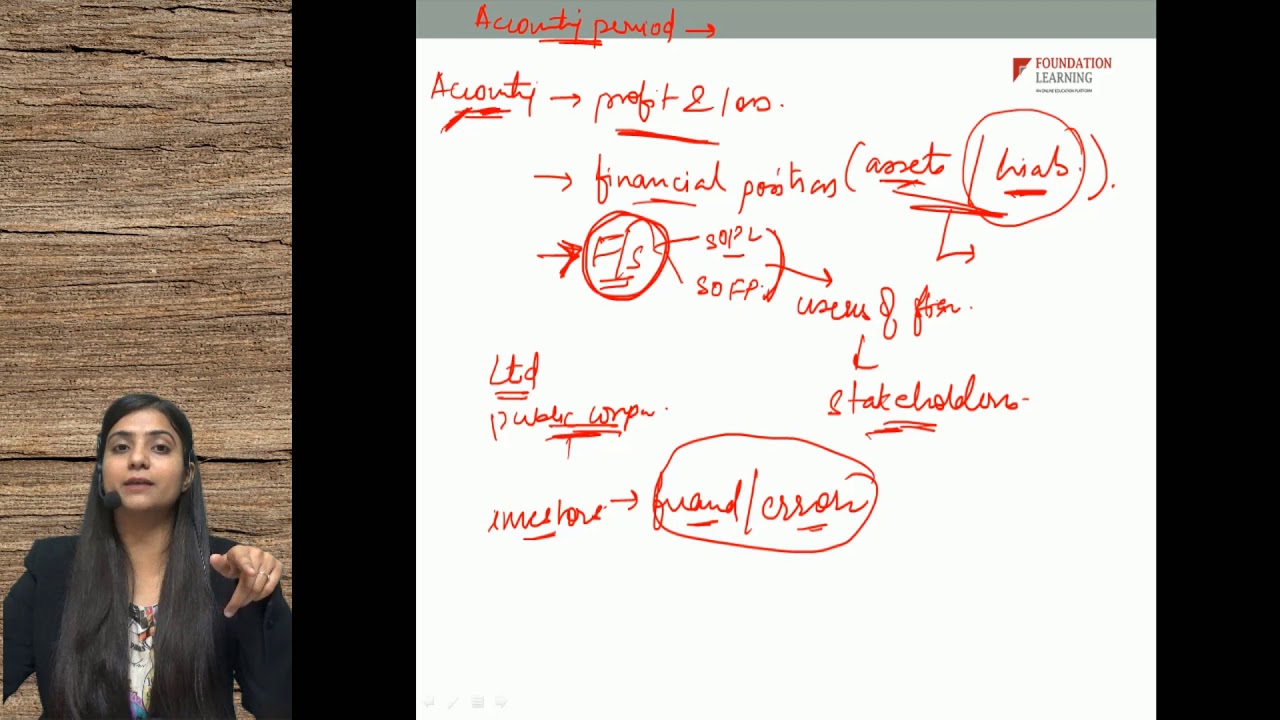 Accounting period →
FOUNDATION
LEARNING
AN ONLINE EDUCATION PLATFORM
Accounting → profit & loss.
→ financial position (assets / liab.).
→ F/S SOPL
SOFP.
users of
Ltd
Stakeholders.
public
investors → fraud/error